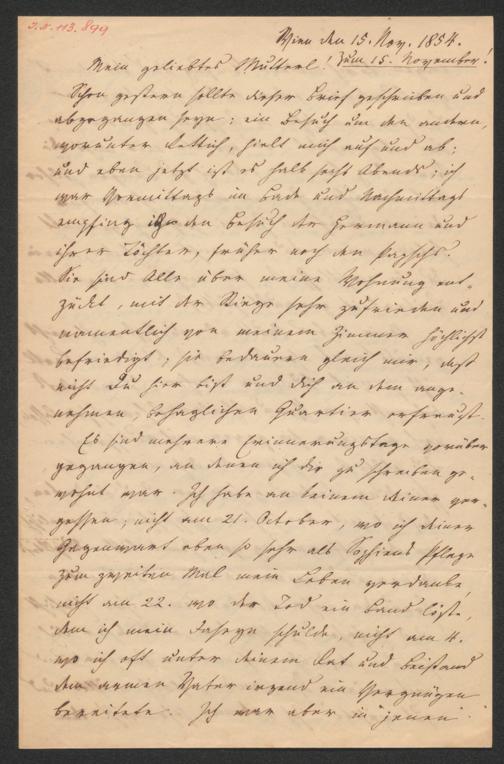 I.N. 113.899
Wien den 15. Nov. 1854.
Mein geliebtes Mutterl! Zum 15. November!
Schon gestern sollte dieser Brief geschrieben und
abgegangen seyn; ein Besuch um den andern,
worunter Rettich, hielt mich auf und ab;
und eben jetzt ist es halb sechs Abends; ich
war Vormittags im Bade und Nachmittags
empfing ich den Besuch der Hermann und
ihrer Töchter, früher noch den
Sie sind Alle über meine Wohnung ent-
zückt, mit der Stiege sehr zufrieden und
namentlich von meinem Zimmer höchlichst
befriedigt; sie bedauern gleich mir, daß
nicht Du hier bist und dich an dem ange-
nehmen, behaglichen Quartier erfreust.
Es sind mehrere Erinnerungstage vorüber
gegangen, an denen ich dir zu schreiben ge-
wohnt war. Ich habe an keinem deiner ver-
gessen; nicht am 21. October, wo ich deiner
Gegenwart eben so sehr als Sophiens Pflege
zum zweiten Mal mein Leben verdanke,
nicht am 22. wo der Tod ein Band löste,
dem ich mein Daseyn schulde, nicht am 4.
wo ich oft unter deinem Rat und Beistand
dem armen Vater irgend ein Vergnügen
bereitete. Ich war aber in jenen